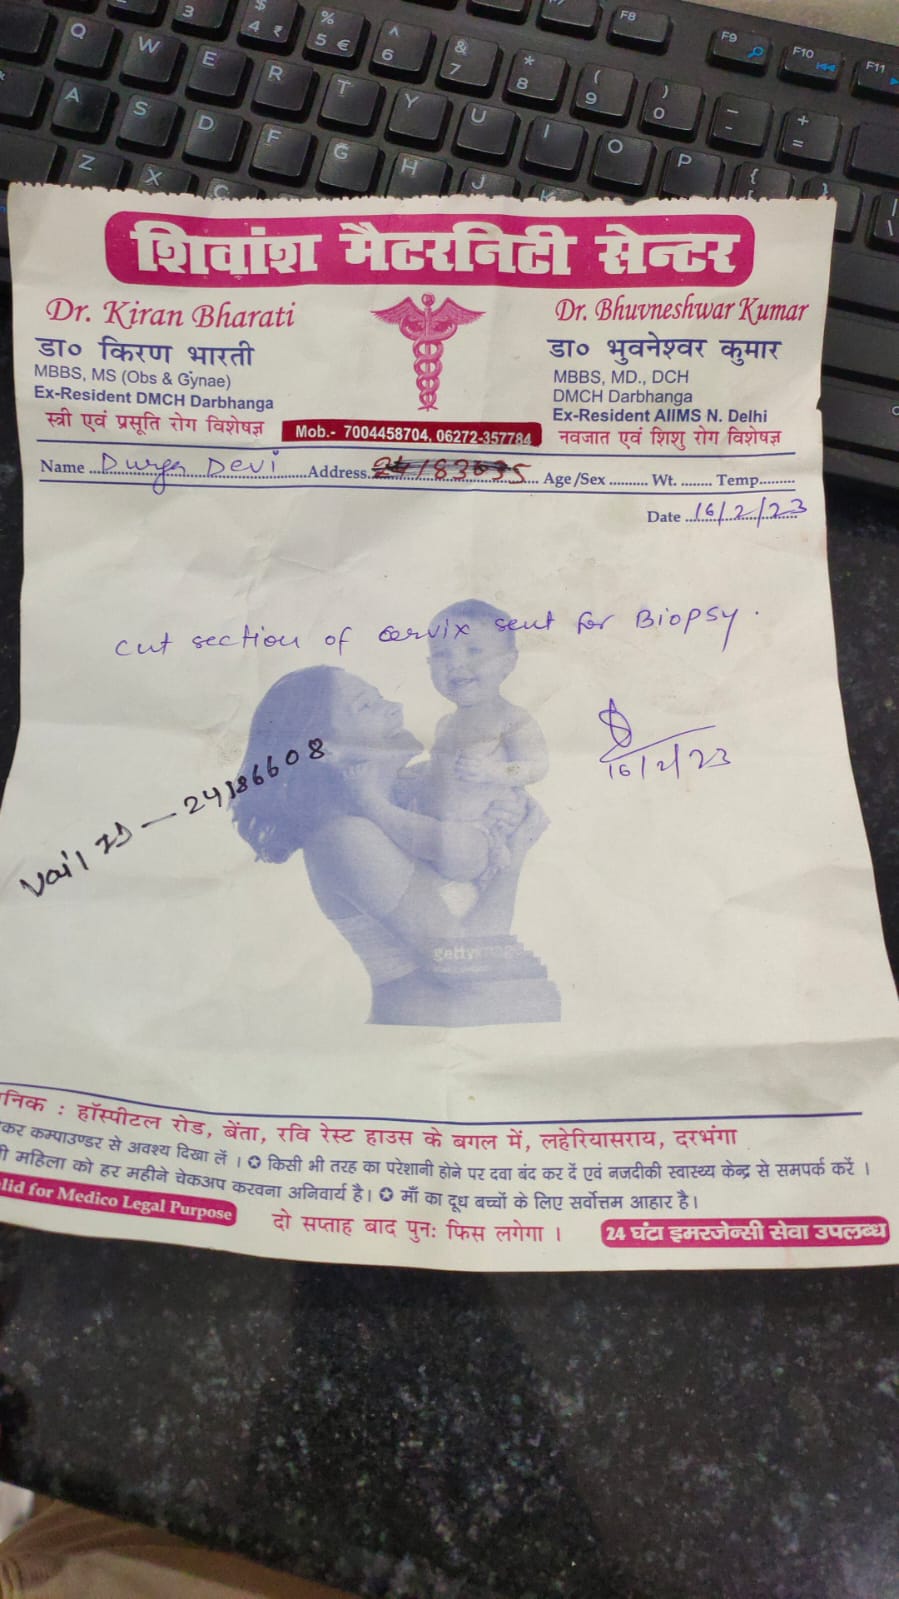 3 $ 4 ₹ % 5 € ^ 6 & 7 * 8 ( 9 ) 0 _ - + =
F8 F9 F10 F11
Q W E R T Y U I O P { [ }
A S D F G H J
Z X C
शिवांश मैटरनिटी सेन्टर
Dr. Kiran Bharati
डा० किरण भारती
MBBS, MS (Obs & Gynae)
Ex-Resident DMCH Darbhanga
स्त्री एवं प्रसूति रोग विशेषज्ञ
Dr. Bhuvneshwar Kumar
डा० भुवनेश्वर कुमार
MBBS, MD., DCH
DMCH Darbhanga
Ex-Resident AIIMS N. Delhi
नवजात एवं शिशु रोग विशेषज्ञ
Mob.- 7004458704, 06272-357784
Name Durga Devi Address Age/Sex Wt. Temp
Date 16/2/23
cut section of cervix sent for Biopsy.
16/2/23
Vail ID — 24186608
gettyimages
निक : हॉस्पीटल रोड, बेंता, रवि रेस्ट हाउस के बगल में, लहेरियासराय, दरभंगा
कर कम्पाउण्डर से अवश्य दिखा लें । ✪ किसी भी तरह का परेशानी होने पर दवा बंद कर दें एवं नजदीकी स्वास्थ्य केन्द्र से समपर्क करें ।
महिला को हर महीने चेकअप करवना अनिवार्य है। ✪ माँ का दूध बच्चों के लिए सर्वोत्तम आहार है।
lid for Medico Legal Purpose
दो सप्ताह बाद पुनः फिस लगेगा ।
24 घंटा इमरजेन्सी सेवा उपलब्ध